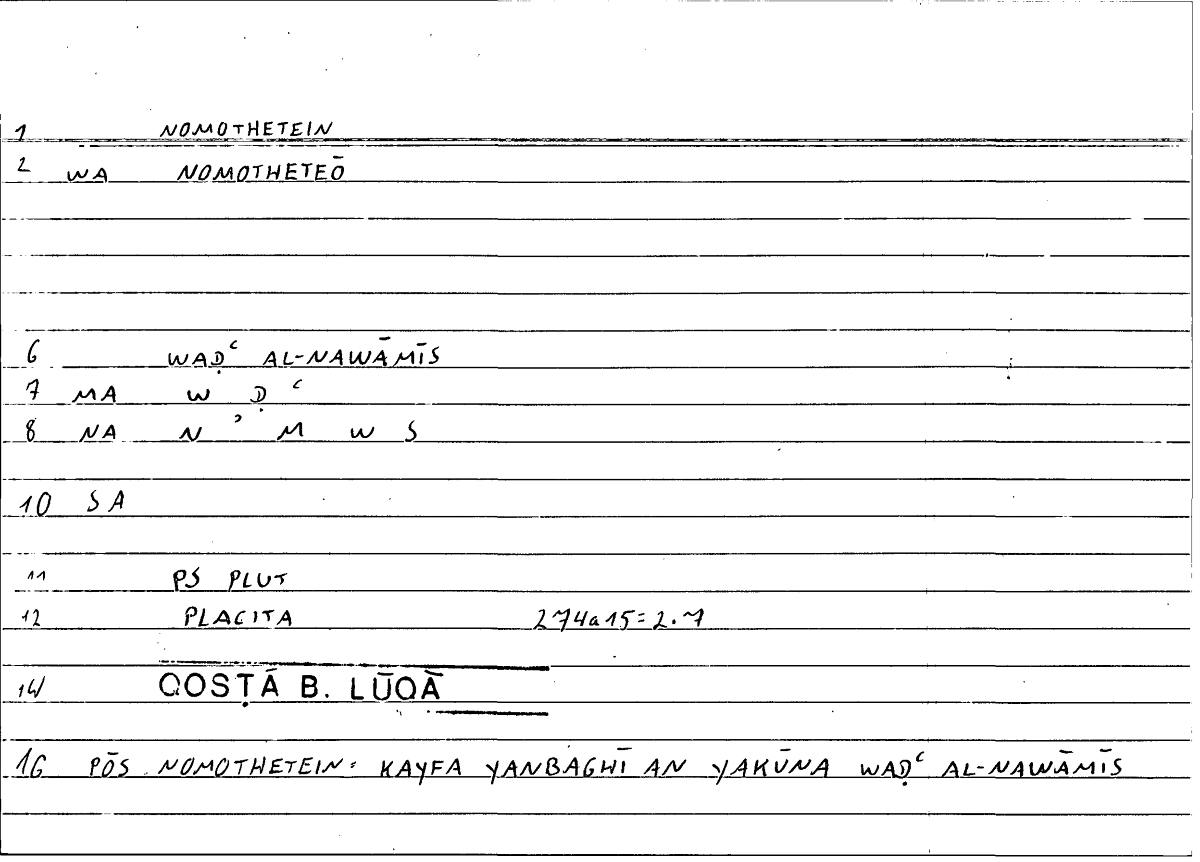 1 NOMOTHETEIN
2 WA NOMOTHETEŌ
6 WAḌʿ AL-NAWĀMĪS
7 MA W Ḍ ʿ
8 NA N ʾ M W S
10 SA
11 PS PLUT
12 PLACITA 274a15=2.7
14 QOSṬĀ B. LŪQĀ
16 PŌS NOMOTHETEIN: KAYFA YANBAGHĪ AN YAKŪNA WAḌʿ AL-NAWĀMĪS